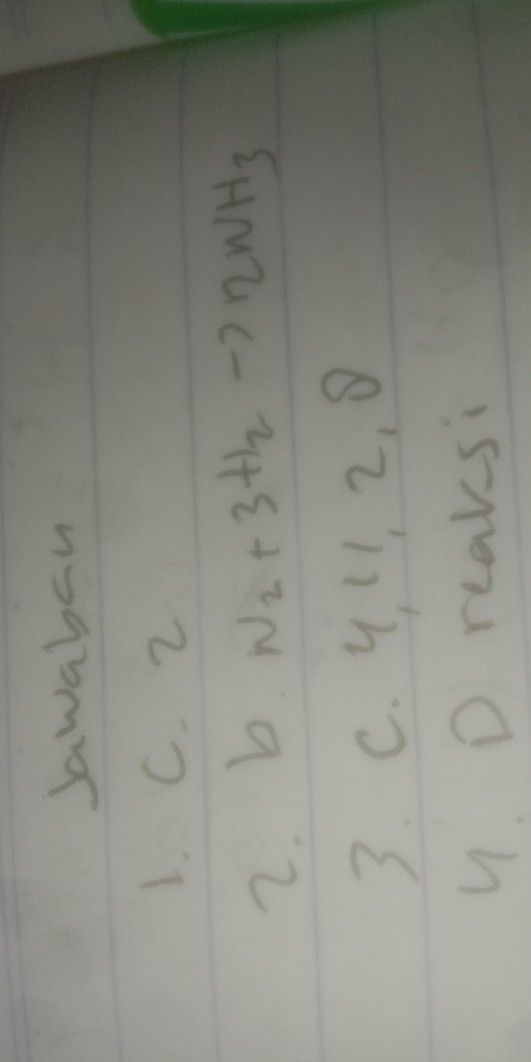 Jawaban
1. C. 2
2. b. N₂ + 3H₂ → 2NH₃
3. C. 4, 11, 2, 8
4. D reaksi